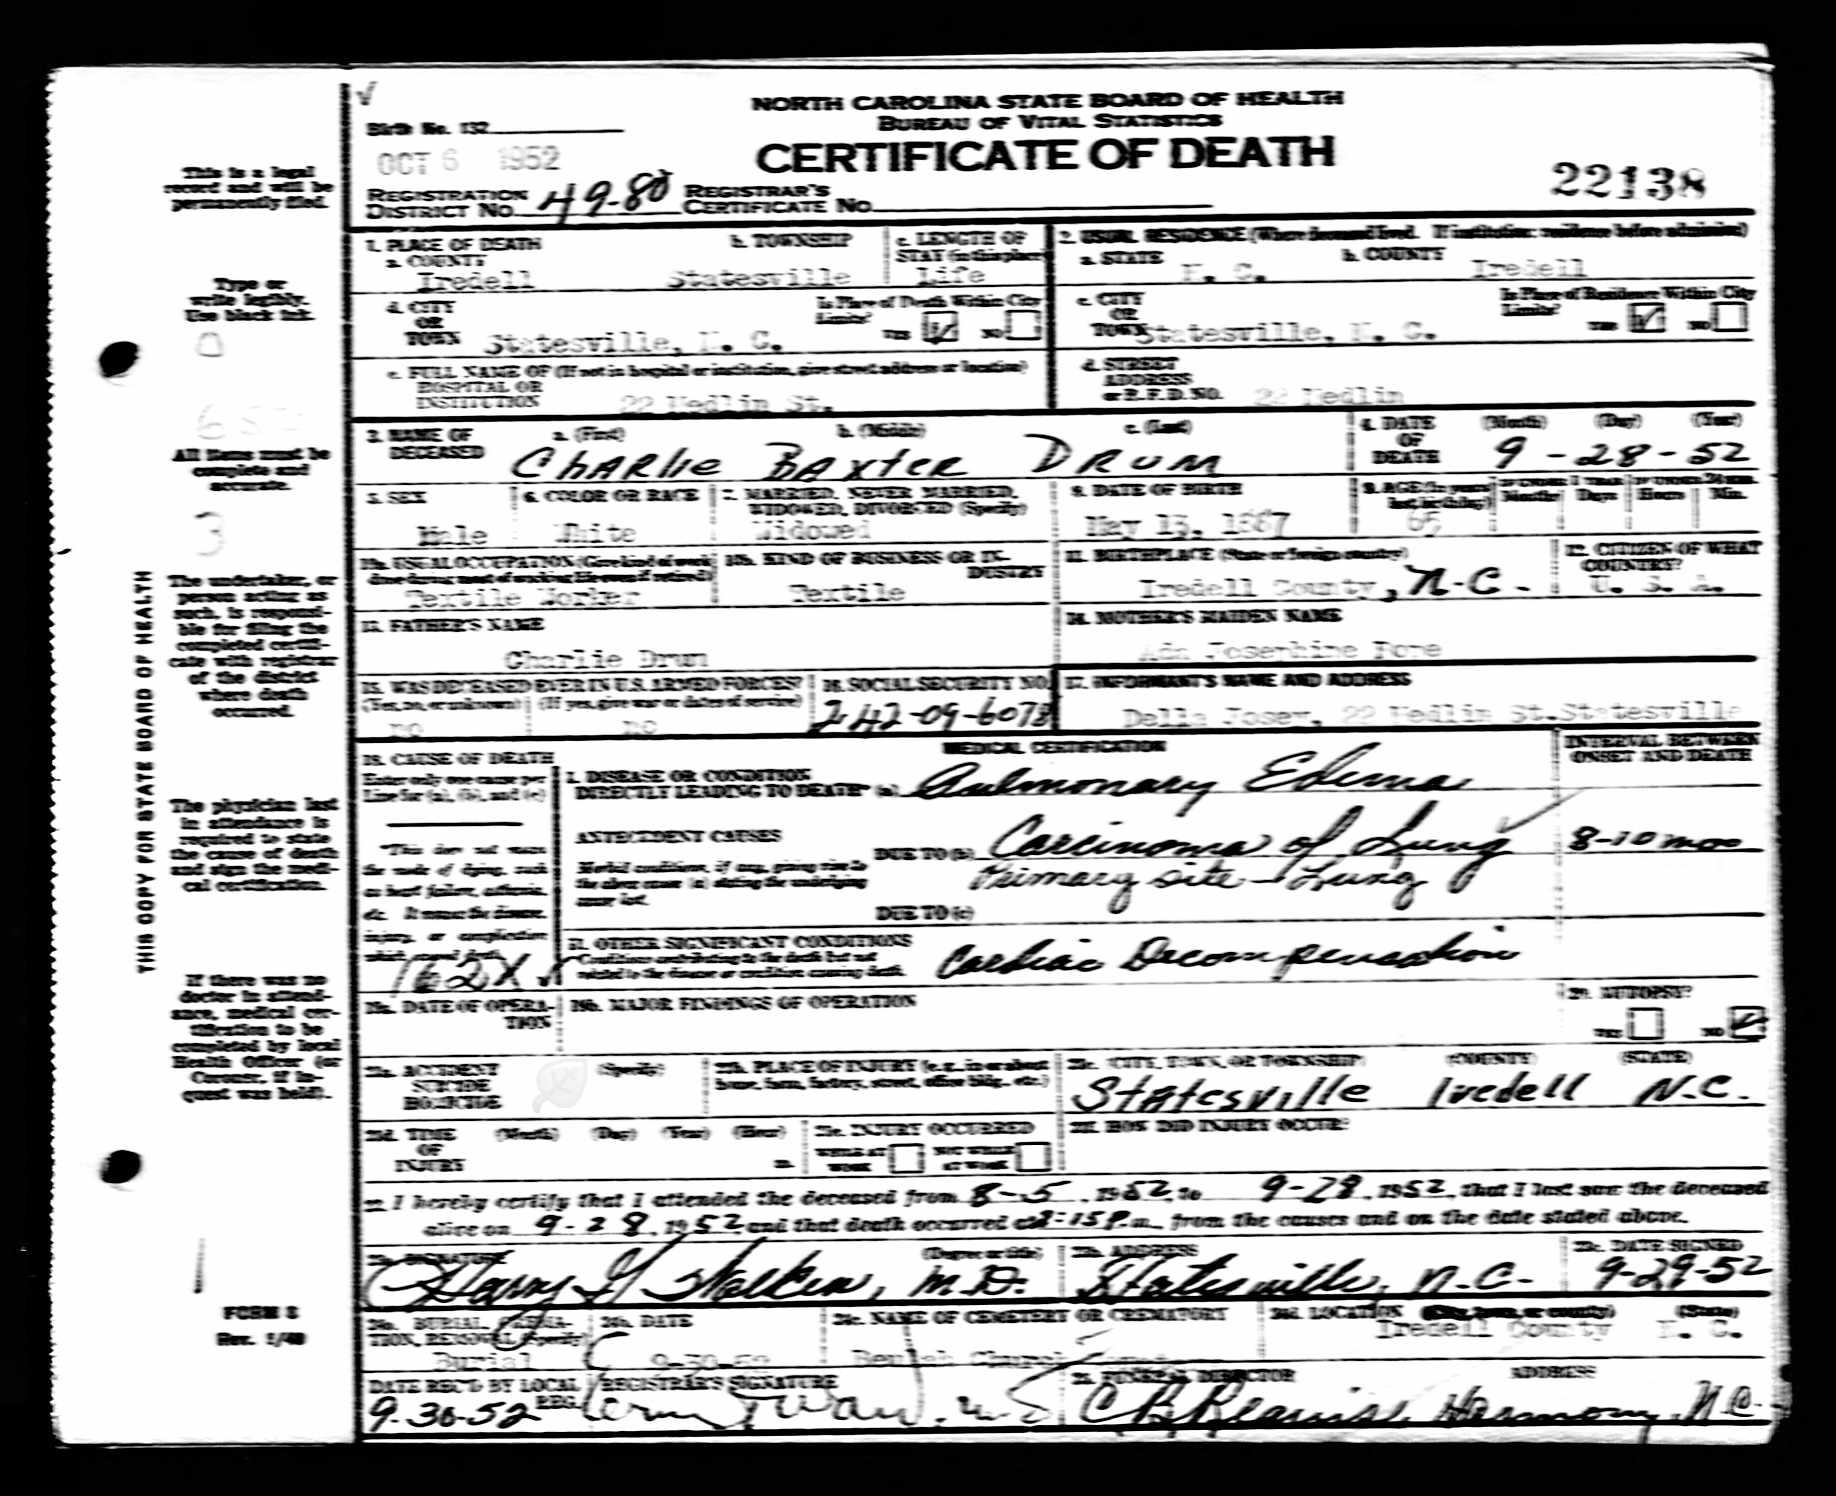 NORTH CAROLINA STATE BOARD OF HEALTH
BUREAU OF VITAL STATISTICS
CERTIFICATE OF DEATH
Birth No. 132
OCT 6 1952
22138
REGISTRATION DISTRICT No. 49-80 REGISTRAR'S CERTIFICATE No.
This is a legal
record and will be
permanently filed.
Type or
write legibly.
Use black ink.
All items must be
complete and
accurate.
3
The undertaker, or
person acting as
such, is responsi-
ble for filing the
completed certifi-
cate with registrar
of the district
where death
occurred.
The physician last
in attendance is
required to state
the cause of death
and sign the medi-
cal certification.
If there was no
doctor in attend-
ance, medical cer-
tification to be
completed by local
Health Officer (or
Coroner, if in-
quest was held).
FORM 8
Rev. 1/49
THIS COPY FOR STATE BOARD OF HEALTH
1. PLACE OF DEATH
a. COUNTY Iredell
b. TOWNSHIP Statesville
c. LENGTH OF STAY (in this place) Life
2. USUAL RESIDENCE (Where deceased lived. If institution: residence before admission)
a. STATE N. C.
b. COUNTY Iredell
d. CITY OR TOWN Statesville, N. C.
Is Place of Death Within City Limits? YES ☑ NO ☐
c. CITY OR TOWN Statesville, N. C.
Is Place of Residence Within City Limits? YES ☑ NO ☐
e. FULL NAME OF (If not in hospital or institution, give street address or location)
HOSPITAL OR INSTITUTION 22 Wedlin St.
d. STREET ADDRESS or R.F.D. NO. 22 Wedlin
3. NAME OF DECEASED
a. (First) b. (Middle) c. (Last)
Charlie Baxter Drum
4. DATE OF DEATH (Month) (Day) (Year)
9-28-52
5. SEX Male
6. COLOR OR RACE White
7. MARRIED, NEVER MARRIED, WIDOWED, DIVORCED (Specify) Widowed
8. DATE OF BIRTH May 13, 1887
9. AGE (In years last birthday) 65
Months Days Hours Min.
10a. USUAL OCCUPATION (Give kind of work done during most of working life even if retired) Textile Worker
10b. KIND OF BUSINESS OR INDUSTRY Textile
11. BIRTHPLACE (State or foreign country) Iredell County, N.C.
12. CITIZEN OF WHAT COUNTRY? U. S. A.
13. FATHER'S NAME Charlie Drum
14. MOTHER'S MAIDEN NAME Ada Josephine
15. WAS DECEASED EVER IN U.S. ARMED FORCES?
(Yes, no, or unknown) no (If yes, give war or dates of service) no
16. SOCIAL SECURITY NO. 242-09-6078
17. INFORMANT'S NAME AND ADDRESS
Della 22 Wedlin St. Statesville
MEDICAL CERTIFICATION
INTERVAL BETWEEN ONSET AND DEATH
18. CAUSE OF DEATH
Enter only one cause per
Line for (a), (b), and (c)
*This does not mean
the mode of dying, such
as heart failure, asthenia,
etc. It means the disease,
injury, or complication
which caused death.
162X
I. DISEASE OR CONDITION
DIRECTLY LEADING TO DEATH* (a) Pulmonary Edema
ANTECEDENT CAUSES
Morbid conditions, if any, giving rise to
the above cause (a) stating the underlying
cause last.
DUE TO (b) Carcinoma of Lung 8-10 mos
Primary site - Lung
DUE TO (c)
II. OTHER SIGNIFICANT CONDITIONS
Conditions contributing to the death but not
related to the disease or condition causing death.
Cardiac Decompensation
19a. DATE OF OPERATION
19b. MAJOR FINDINGS OF OPERATION
20. AUTOPSY? YES ☐ NO ☑
21a. ACCIDENT SUICIDE HOMICIDE (Specify)
21b. PLACE OF INJURY (e.g., in or about home, farm, factory, street, office bldg., etc.)
21c. (CITY, TOWN, OR TOWNSHIP) (COUNTY) (STATE)
Statesville Iredell N.C.
21d. TIME OF INJURY (Month) (Day) (Year) (Hour) m.
21e. INJURY OCCURRED
WHILE AT WORK ☐ NOT WHILE AT WORK ☐
21f. HOW DID INJURY OCCUR?
22. I hereby certify that I attended the deceased from 8-5, 1952, to 9-28, 1952, that I last saw the deceased
alive on 9-28, 1952 and that death occurred at :15 P.m., from the causes and on the date stated above.
23a. SIGNATURE (Degree or title)
Harry M.D.
23b. ADDRESS Statesville, N.C.
23c. DATE SIGNED 9-29-52
24a. BURIAL, CREMATION, REMOVAL (Specify) Burial
24b. DATE 9-30-52
24c. NAME OF CEMETERY OR CREMATORY Beulah Church
24d. LOCATION (City, town, or county) (State)
Iredell County N. C.
DATE REC'D BY LOCAL REG. 9-30-52
REGISTRAR'S SIGNATURE
25. FUNERAL DIRECTOR ADDRESS
Harmony, N.C.